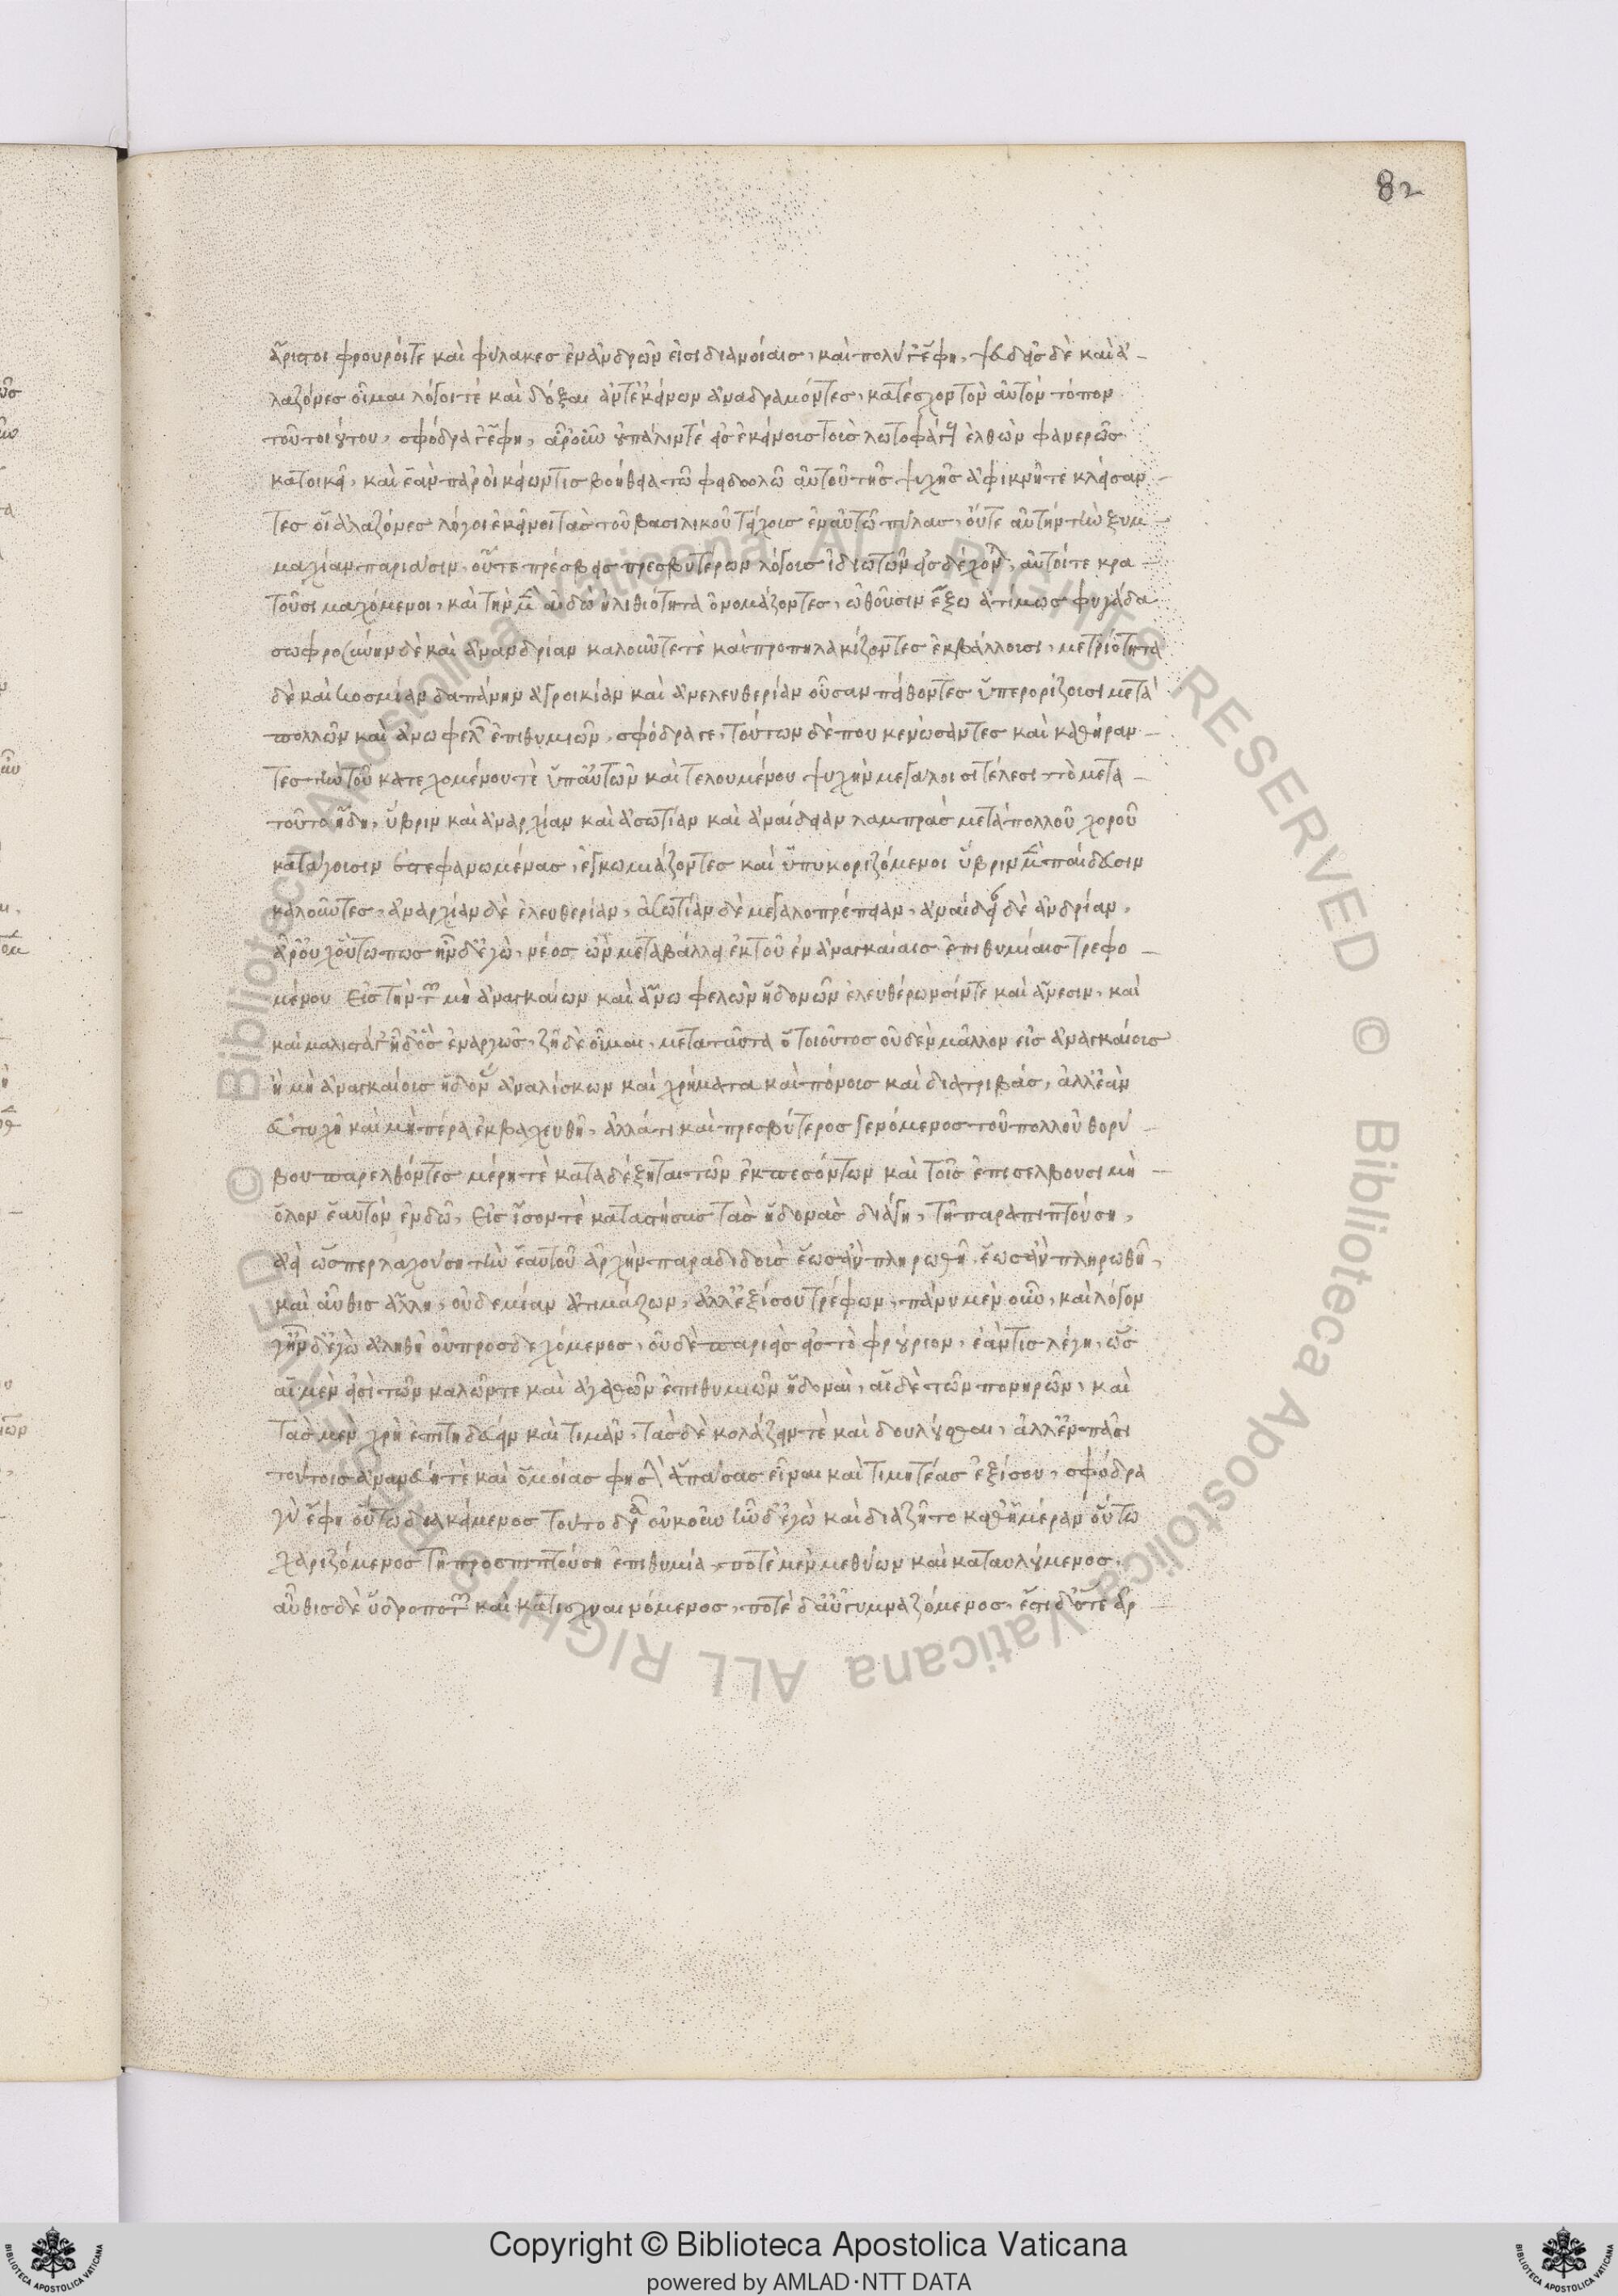 82
ἄριστοι φρουροίτε καὶ φύλακες ἐν ἀνδρῶν εἰσι διανοίαις, καὶ πολύ γ' ἔφη, ψευδεῖς δὲ καὶ ἀ-
λαζόνες οἶμαι λόγοι τὲ καὶ δόξαι ἀντ' ἐκείνων ἀναδραμόντες, κατέσχον τὸν αὐτὸν τόπον
τοῦ τοιούτου, σφόδρα γ' ἔφη, ἆρ' οὖν οὐ πάλιν τὲ εἰς ἐκείνους τοὺς λωτοφάγους ἐλθὼν φανερῶς
κατοικεῖ, καὶ ἐὰν παρ' οἰκείων τις βοήθεια τῶ φειδωλῶ αὐτοῦ τῆς ψυχῆς ἀφικνῆτε κλείσαν-
τες οἱ ἀλαζόνες λόγοι ἐκεῖνοι τὰς τοῦ βασιλικοῦ τείχους ἐν αὐτῶ πύλας, οὔτε αὐτὴν τὴν ξυμ-
μαχίαν παριᾶσιν, οὔτε πρέσβεις πρεσβυτέρων λόγους ἰδιωτῶν εἰσδέχονται, αὐτοίτε κρα-
τοῦσι μαχόμενοι, καὶ τὴν μὲν αἰδῶ ἠλιθιότητα ὀνομάζοντες, ὠθοῦσιν ἔξω ἀτίμως φυγάδα
σωφροσύνην δὲ καὶ ἀνανδρίαν καλοῦντε τὲ καὶ προπηλακίζοντες ἐκβάλλουσι, μετριότητα
δὲ καὶ κοσμίαν δαπάνην ἀγροικίαν καὶ ἀνελευθερίαν οὖσαν πείθοντες ὑπερορίζουσι μετὰ
πολλῶν καὶ ἀνωφελῶν ἐπιθυμιῶν, σφόδρα γε, τούτων δέ που κενώσαντες καὶ καθήραν-
τες τὴν τοῦ κατεχομένου τὲ ὑπ' αὐτῶν καὶ τελουμένου ψυχὴν μεγάλοισι τέλεσι τὸ μετα-
τοῦτο ἤδη, ὕβριν καὶ ἀναρχίαν καὶ ἀσωτίαν καὶ ἀναίδειαν λαμπρὰς μετὰ πολλοῦ χοροῦ
κατάγουσιν ἐστεφανωμένας, ἐγκωμιάζοντες καὶ ὑπυκοριζόμενοι ὕβριν μὲν εὐπαίδευσιν
καλοῦντες, ἀναρχίαν δὲ ἐλευθερίαν, ἀσωτίαν δὲ μεγαλοπρέπειαν, ἀναίδειαν δὲ ἀνδρίαν,
ἆρ' οὐχ οὕτω πως ἦν δ' ἐγὼ, νέος ὢν μεταβάλλει ἐκ τοῦ ἐν ἀναγκαίαις ἐπιθυμίαις τρεφο-
μένου εἰς τὴν τῶν μὴ ἀναγκαίων καὶ ἀνωφελῶν ἡδονῶν ἐλευθέρωσίντε καὶ ἄνεσιν, καὶ
καὶ μάλιστά γ' ἦ δ' ὃς ἐναργῶς, ζῆ δὲ οἶμαι, μεταταῦτα ὁ τοιοῦτος οὐδὲν μᾶλλον εἰς ἀναγκαίους
ἢ μὴ ἀναγκαίους ἡδονὰς ἀναλίσκων καὶ χρήματα καὶ πόνους καὶ διατριβάς, ἀλλ' ἐὰν
εὐτυχῆ καὶ μὴ πέρα ἐκβακχευθῆ, ἀλλά τι καὶ πρεσβύτερος γενόμενος τοῦ πολλοῦ θορύ-
βου παρελθόντες μέρη τὲ καταδέξηται τῶν ἐκπεσόντων καὶ τοῖς ἐπισελθουσι μὴ-
ὅλον ἑαυτὸν ἐνδῶ, εἰς ἴσον τὲ καταστήσας τὰς ἡδονὰς διάγη, τῆ παραπιπτούση,
ἀεὶ ὥσπερ λαχούση τὴν ἑαυτοῦ ἀρχὴν παραδιδοὺς ἕως ἂν πληρωθῆ, ἕως ἂν πληρωθῆ,
καὶ αὖθις ἄλλη, οὐδεμίαν ἀτιμάζων, ἀλλ' ἐξίσου τρέφων, πάνυ μὲν οὖν, καὶ λόγον
γ' ἦν δ' ἐγὼ ἀληθῆ οὐ προσδεχόμενος, οὐδὲ παριεὶς εἰς τὸ φρούριον, ἐάν τις λέγη, ὡς
αἱ μὲν εἰσὶ τῶν καλῶντε καὶ ἀγαθῶν ἐπιθυμιῶν ἡδοναὶ, αἱ δὲ τῶν πονηρῶν, καὶ
τὰς μὲν χρὴ ἐπιτηδεύειν καὶ τιμᾶν, τὰς δὲ κολάζειν τὲ καὶ δουλοῦσθαι, ἀλλ' ἐν πᾶσι
τούτοις ἀνανεύη τὲ καὶ ὁμοίας φησὶν ἁπάσας εἶναι καὶ τιμητέας ἐξίσου, σφόδρα
γὰρ ἔφη οὕτω διακείμενος τοῦτο δρᾶ οὐκοῦν ἦν δ' ἐγὼ καὶ διαζῆ τὸ καθ' ἡμέραν οὕτω
χαριζόμενος τῆ προσπιπτούση ἐπιθυμία, ποτὲ μὲν μεθύων καὶ καταυλούμενος,
αὖθις δὲ ὑδροποτῶν καὶ κατισχναινόμενος, ποτὲ δ' αὖ γυμναζόμενος, ἔστι δ' ὅτε ἀρ
Copyright © Biblioteca Apostolica Vaticana
powered by AMLAD·NTT DATA